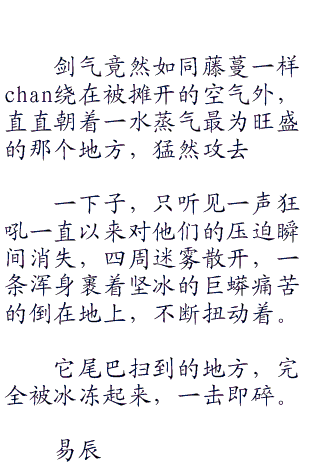 剑气竟然如同藤蔓一样
chan绕在被摊开的空气外，
直直朝着一水蒸气最为旺盛
的那个地方，猛然攻去
一下子，只听见一声狂
吼一直以来对他们的压迫瞬
间消失，四周迷雾散开，一
条浑身裹着坚冰的巨蟒痛苦
的倒在地上，不断扭动着。
它尾巴扫到的地方，完
全被冰冻起来，一击即碎。
易辰